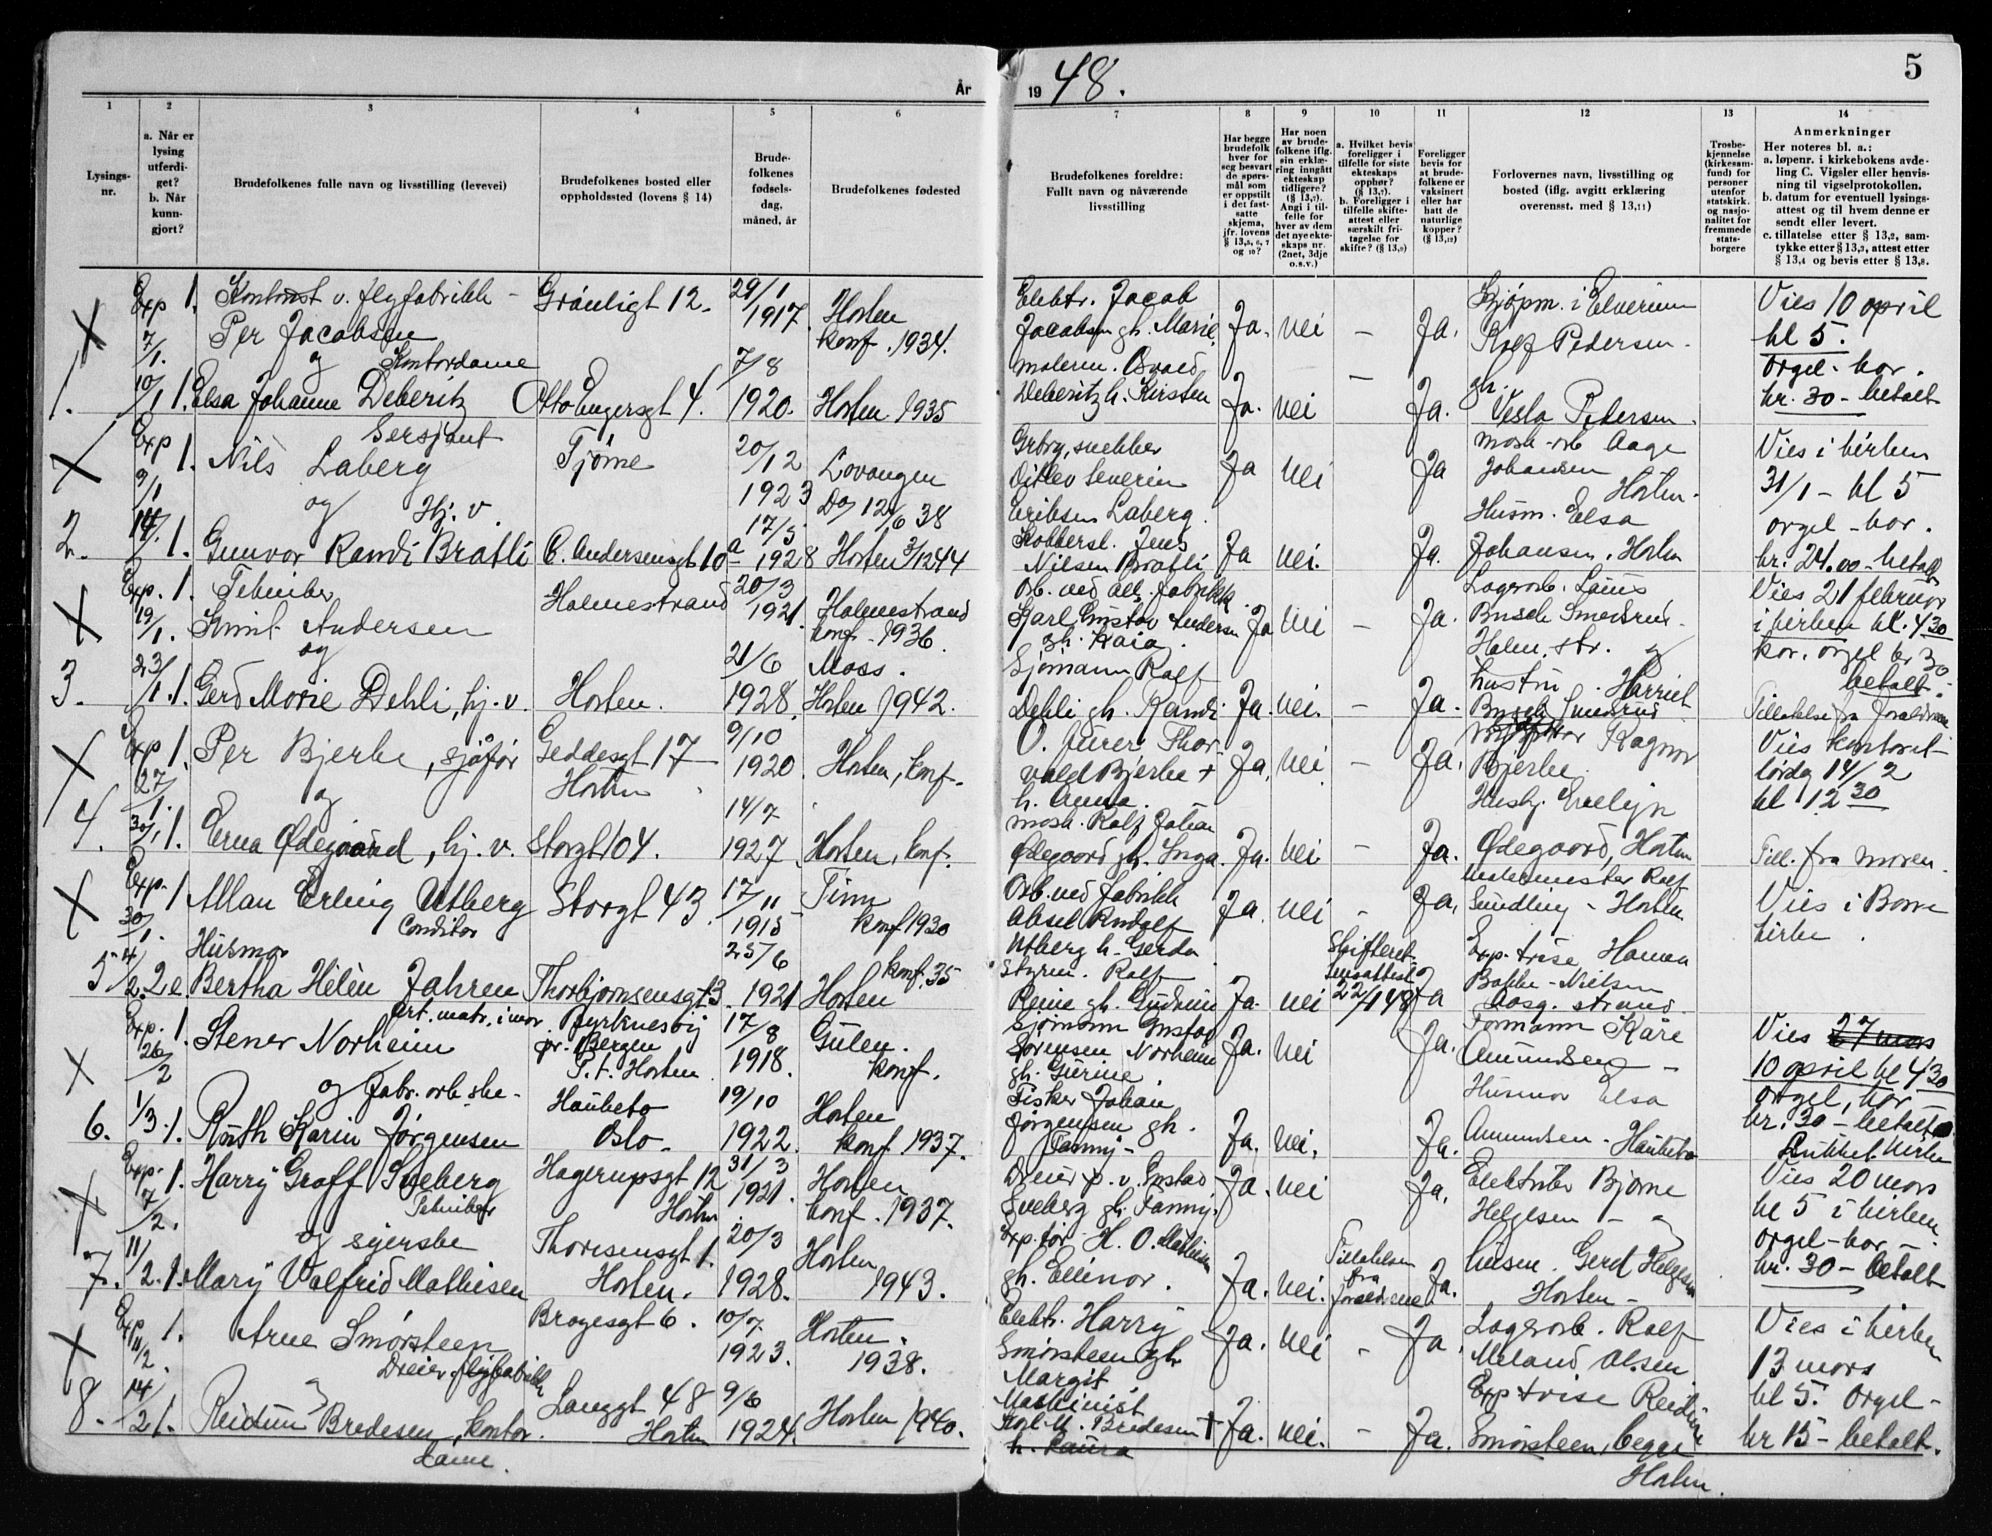 År 1948.
5
1 2 3 4 5 6 7 8 9 10 11 12 13 14
Lysings-
nr.
a. Når er
lysing
utferdi-
get?
b. Når
kunn-
gjort?
Brudefolkenes fulle navn og livsstilling (levevei)
Brudefolkenes bosted eller
oppholdssted (lovens § 14)
Brude-
folkenes
fødsels-
dag,
måned, år
Brudefolkenes fødested
Brudefolkenes foreldre:
Fullt navn og nåværende
livsstilling
Har begge
brudefolk
hver for
seg besvart
de spørs-
mål som
er oppstilt
i det fast-
satte
skjema,
jfr. lovens
§ 13,5, 6, 7
og 10?
Har noen
av brude-
folkene iflg.
sin erklæ-
ring inngått
ekteskap
tidligere?
(§ 13,7).
Angi i til-
felle for
hver av dem
det nye ekte-
skaps nr.
(2net, 3dje
o.s.v.)
a. Hvilket bevis
foreligger i
tilfelle for siste
ekteskaps
opphør?
(§ 13,7).
b. Foreligger i
tilfelle skifte-
attest eller
særskilt fri-
tagelse for
skifte? (§ 13,9)
Foreligger
bevis for
at brude-
folkene er
vaksinert
eller har
hatt de
naturlige
kopper?
(§ 13,12)
Forlovernes navn, livsstilling og
bosted (iflg. avgitt erklæring
overensst. med § 13,11)
Trosbe-
kjennelse
(kirkesam-
fund) for
personer
utenfor
statskirk.
og nasjo-
nalitet for
fremmede
stats-
borgere
Anmerkninger
Her noteres bl. a.:
a. løpenr. i kirkebokens avde-
ling C. Vigsler eller henvis-
ning til vigselprotokollen.
b. datum for eventuell lysings-
attest og til hvem denne er
sendt eller levert.
c. tillatelse etter § 13,2, sam-
tykke etter § 13,3, attest etter
§ 13,4 og bevis etter § 13,8.
X Exp 1. Kontorist v. flyfabrikk - Grønligt 12. 29/1
7/1. Per Jacobsen 1917. Horten
konf. 1934.
og Kontordame 7/8
1. 10/1 1. Elsa Johanne Deberitz Otto Engersgt 4. 1920. Horten 1935
Elektr. Jacob
Jacobsen gh. Marie Ja. nei - Ja.
malerm. Osvald
Deberitz h. Kirsten Ja. nei - Ja.
Kjøpm. i Elverum
Rolf Pedersen.
gh.
Vesla Pedersen.
Vies 10 april
kl 5.
orgel - kor.
kr. 30 - betalt
X Exp 1. Sersjant
9/1 Nils Laberg Tjøme 20/12
1923 Lavangen
Døp 12/6 38
og Hj. v. 17/5
2. 14/1. 1. Gunvor Randi Bratli C. Andersensgt 10a 1928 Horten 3/12 44
Ditlev Severin
Eriksen Laberg. Ja nei Ja
Kobbersl. Jens
Nilsen Bratli Ja nei. Ja.
Mask-arb Aage
Johansen
Horten.
Husm. Elsa
Johansen. Horten
Vies i kirken
31/1 - kl 5
orgel - kor.
kr. 24.00 - betalt
X Exp. 1. Tekniker Holmestrand 20/3
19/1. Knut Andersen 1921. Holmestrand
konf - 1936.
og 21/6 Moss.
3. 23/1. 1. Gerd Marie Dehli, hj. v. Horten. 1928. Horten 1942.
Arb. ved all. fabrikk.
Karl Gustav Andersen Ja nei - Ja.
gh. Kaia.
Sjømann Ralf
Dehli gh. Randi Ja. nei. - Ja.
Lagerarb. Laurs
Busch Smedsrud.
Holm. str. og
hustru. Harriet
Busch Smedsrud
Vies 21 februar
i kirken kl. 4 30
kor. orgel kr 30
betalt.
Tillatelse fra foreldrene
X Exp 1. Per Bjerke, sjåfør Geddesgt 17 9/10
27/1. Horten 1920. Horten, konf.
og 14/7
4. 30/1 1. Erna Ødegaard, hj. v. Storgt 104. 1927. Horten, konf.
O. furer Thor
vald Bjerke + Ja. nei - Ja.
h. Anna.
Mask. Ralf Johan
Ødegaard gh. Inga. Ja. nei - Ja.
Ragnar
Bjerke.
Husk. Evelyn
Ødegaard, Horten
Vies kontoret
lørdg 14/2
kl 12 30
Till. fra moren.
X Exp. 1 Allan Erling Utberg Storgt 43. 17/11 Tinn
30/1. Conditor 1915 konf 1930
Husmor 25/6 konf. 35
5 4/2. 2 e. Bertha Helèn Jahren Thorbjornsensgt 3. 1921 Horten
Arb. ved fabrikk
Aksel Rudolf
Utberg h. Gerda Ja. nei - Ja.
Styrm. Ralf
Reine gh. Gudrun Ja. nei 22/1 48 Ja
Malermester Rolf
Sundling - Horten
Exp. trise Hanna
Bakke - Nilsen
Aasg. strand.
Vies i Borre
kirke.
X Exp. 1. Art. matr. i mar. Fyrknesvij 17/8 Gulen.
26/2 Stener Norheim pr. Bergen 1918. konf.
P. t. Horten
og fabr. arb.ske - Haukebo 19/10 Horten
6. 1/3. 1. Ruth Karin Jørgensen Oslo. 1922. konf 1937.
Sjømann Gustav
Sørensen Norheim Ja. nei Ja.
gh. Gurine
Fisker Johan
Jørgensen gh.
Fanny - Ja. nei. Ja.
Formann Kåre
Amundsen -
Husmor Elsa
Amundsen - Haukebo
Vies 27 mars
10 april kl 4 30
orgel, kor -
kr. 30 - betalt
X Exp. 1. Harry Graff Sveberg Hagerupsgt 12 31/3 Horten
7/2. Tekniker Horten 1921. konf. 1937.
og syerske Thoresensgt 1. 20/3 Horten
7. 11/2. 1. Mary Valfrid Mathisen Horten. 1928. 1943.
Dreier p. v. Gustav
Sveberg gh. Fanny. Ja. nei Ja.
Exp. før H. O. Mathisen
gh. Ellinor. Ja. nei. Tillatelse fra foreldrene Ja.
Elektriker Bjarne
Helgesen - og
husm. Gerd Helgesen
Horten -
Vies 20 mars
kl 5 i kirken
orgel - kor -
kr. 30 - betalt
X Exp 1. Arne Smørsteen Bragesgt 6. 10/7 Horten.
11/2. Dreier. flyfabrikk 1923. 1938.
8. 14/2 1. Reidun Bredesen, kontor- Langgt 48 9/6
dame. Horten 1924. Horten 1940.
Elektr. Harry
Smørsteen gh
Margit Ja. nei - Ja.
Maskinist
Karl M. Bredesen †
h. Laura Ja. nei. - Ja.
Lagerarb. Ralf
Meland Olsen
Exp trise Reidun
Smørsteen, begge
Horten.
Vies i kirken
13 mars
kl 5. Orgel -
kr 15 - betalt.